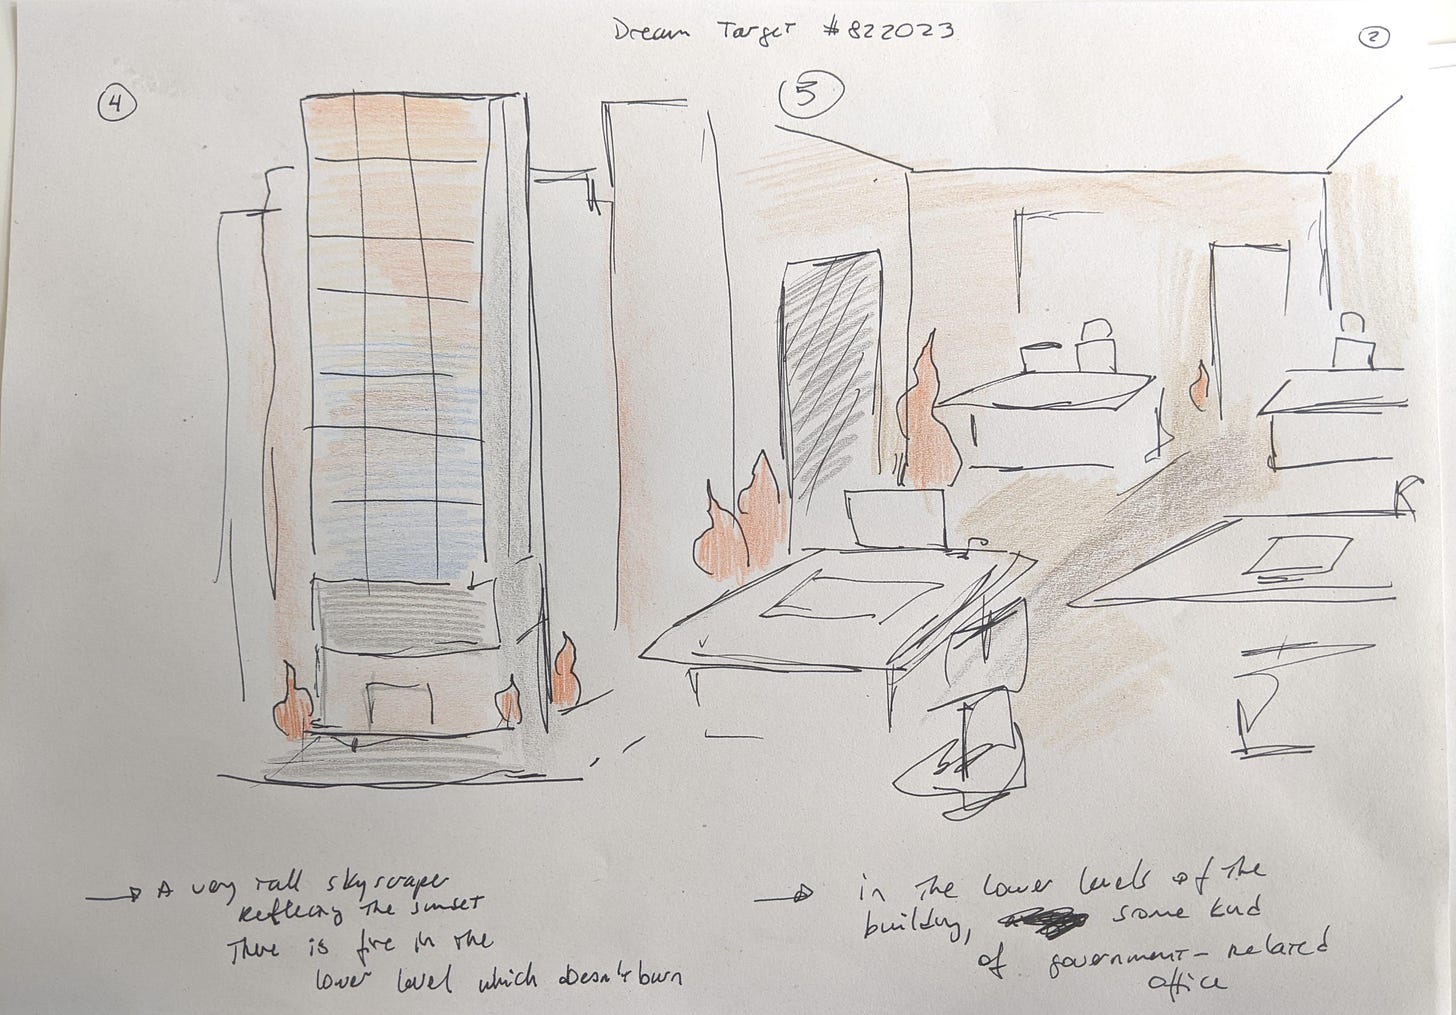 Dream Target #822023
2
4
5
A very tall skyscraper
Reflecting the sunset
There is fire in the
lower level which doesn't burn
in the lower levels of the
building, some kind
of government-related
office